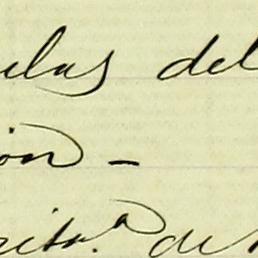 ulas del
ion -
rito.ª de